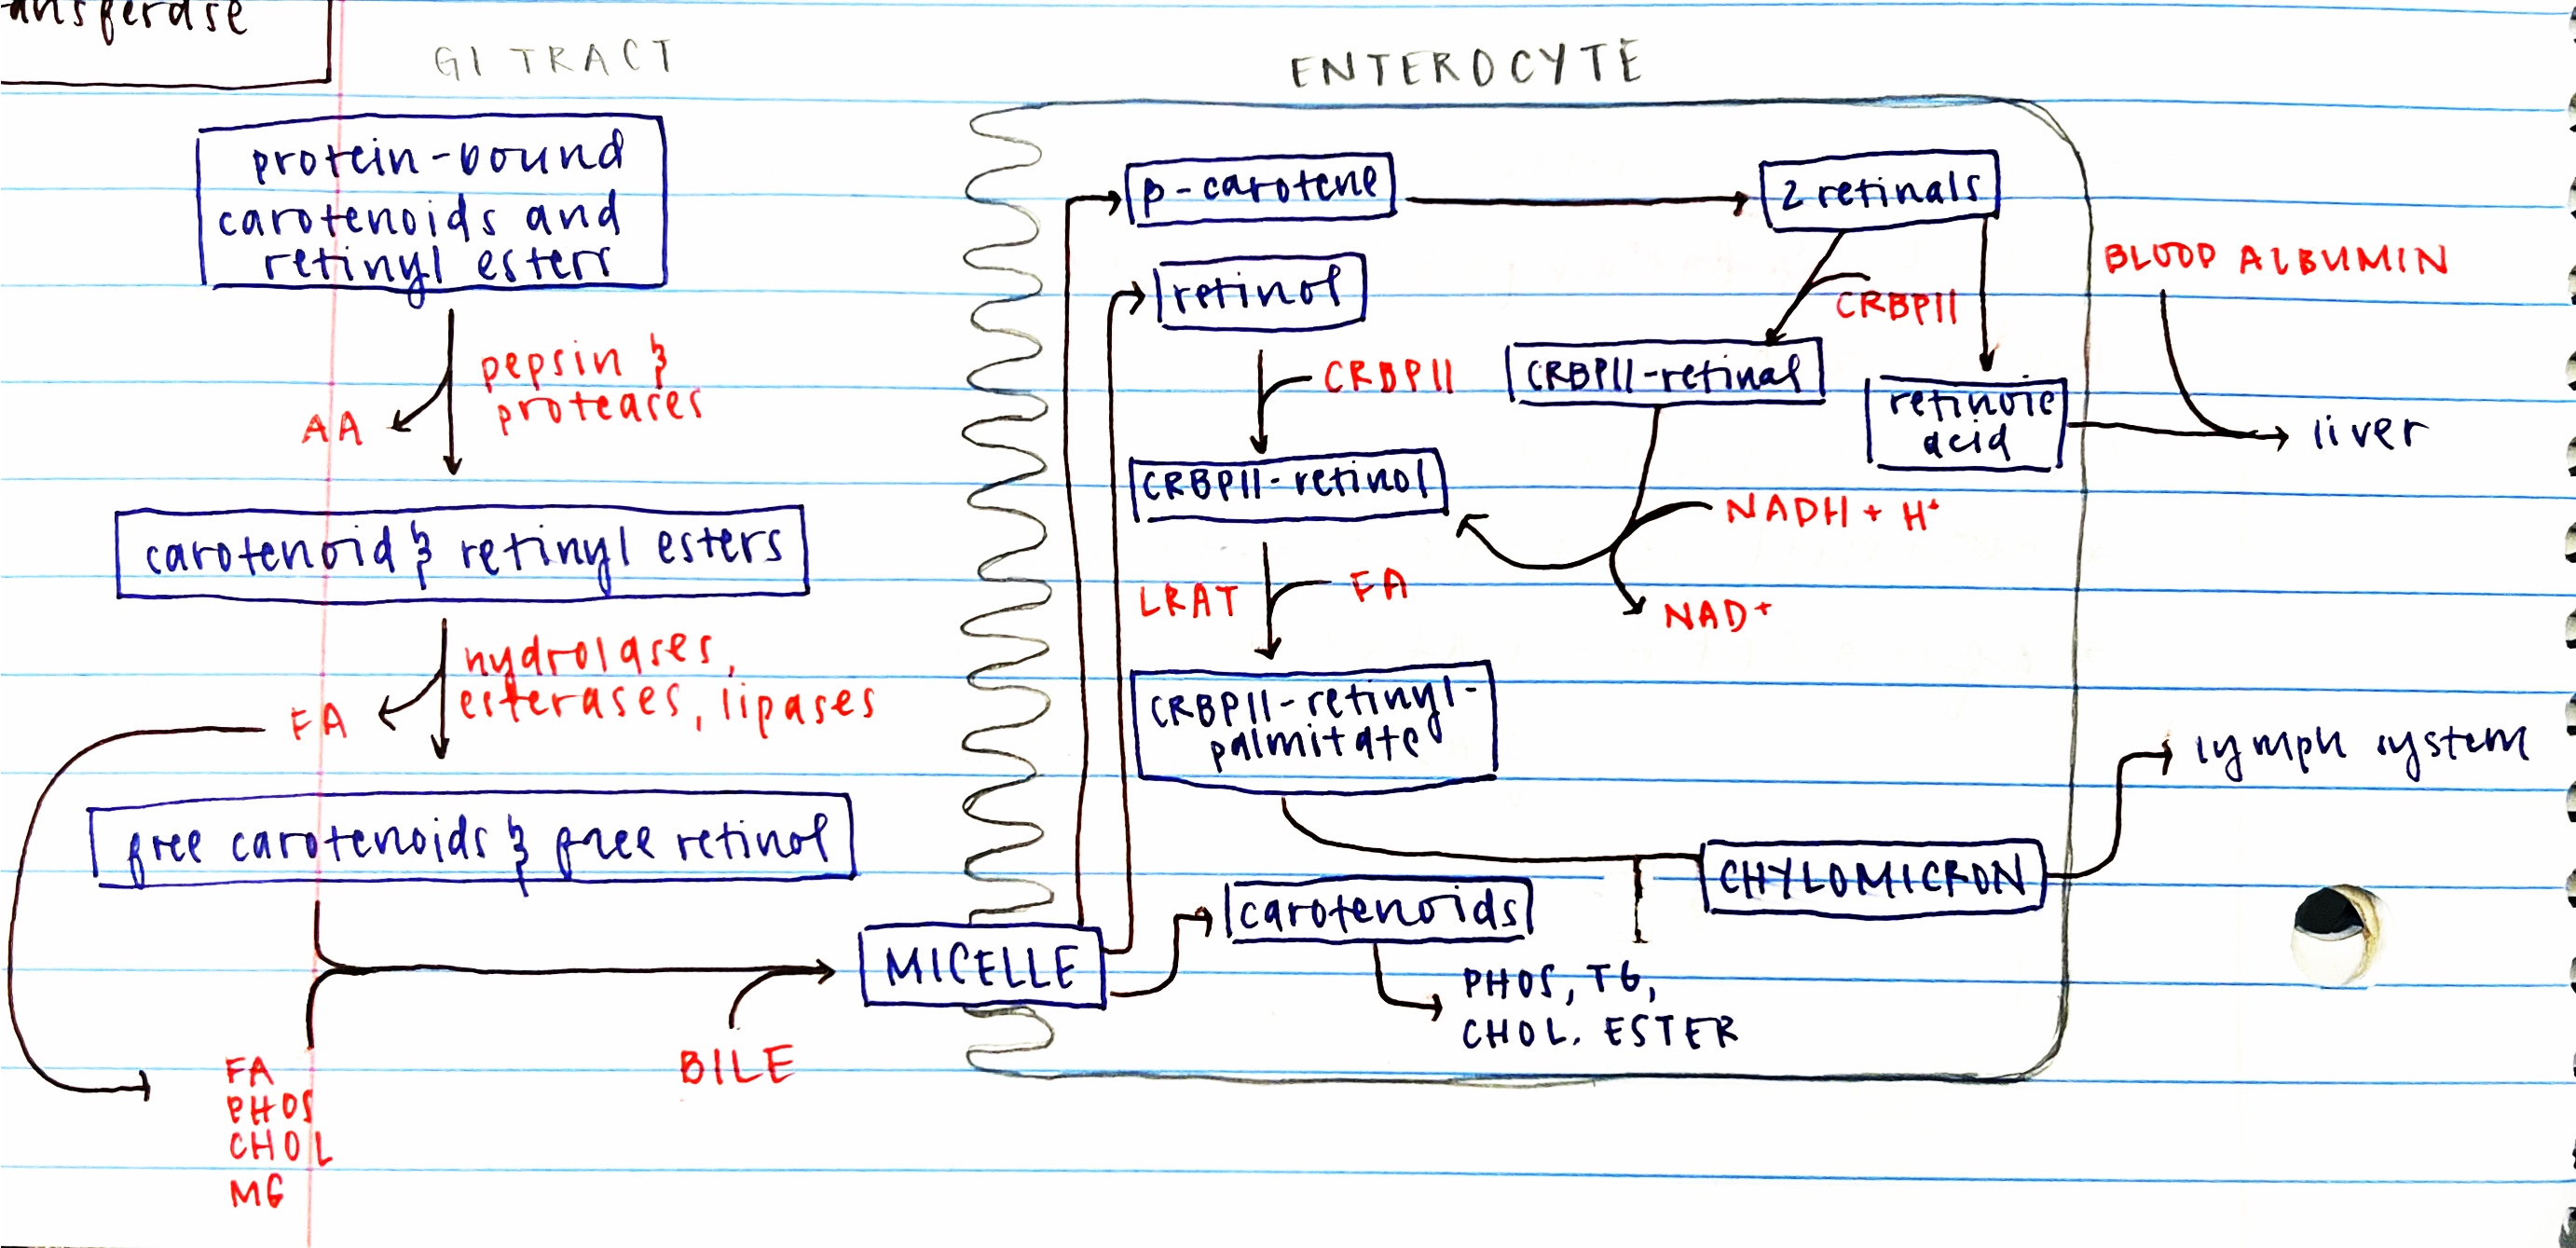 ansferase
GI TRACT
protein-bound
carotenoids and
retinyl esters
pepsin &
proteases
AA
carotenoid & retinyl esters
hydrolases,
esterases, lipases
FA
free carotenoids & free retinol
FA
PHOS
CHOL
MG
BILE
MICELLE
ENTEROCYTE
β-carotene
2 retinals
retinol
CRBPII
CRBPII
CRBPII-retinal
retinoic
acid
BLOOD ALBUMIN
liver
CRBPII-retinol
NADH + H+
NAD+
LRAT
FA
CRBPII-retinyl-
palmitate
carotenoids
PHOS, TG,
CHOL. ESTER
CHYLOMICRON
lymph system